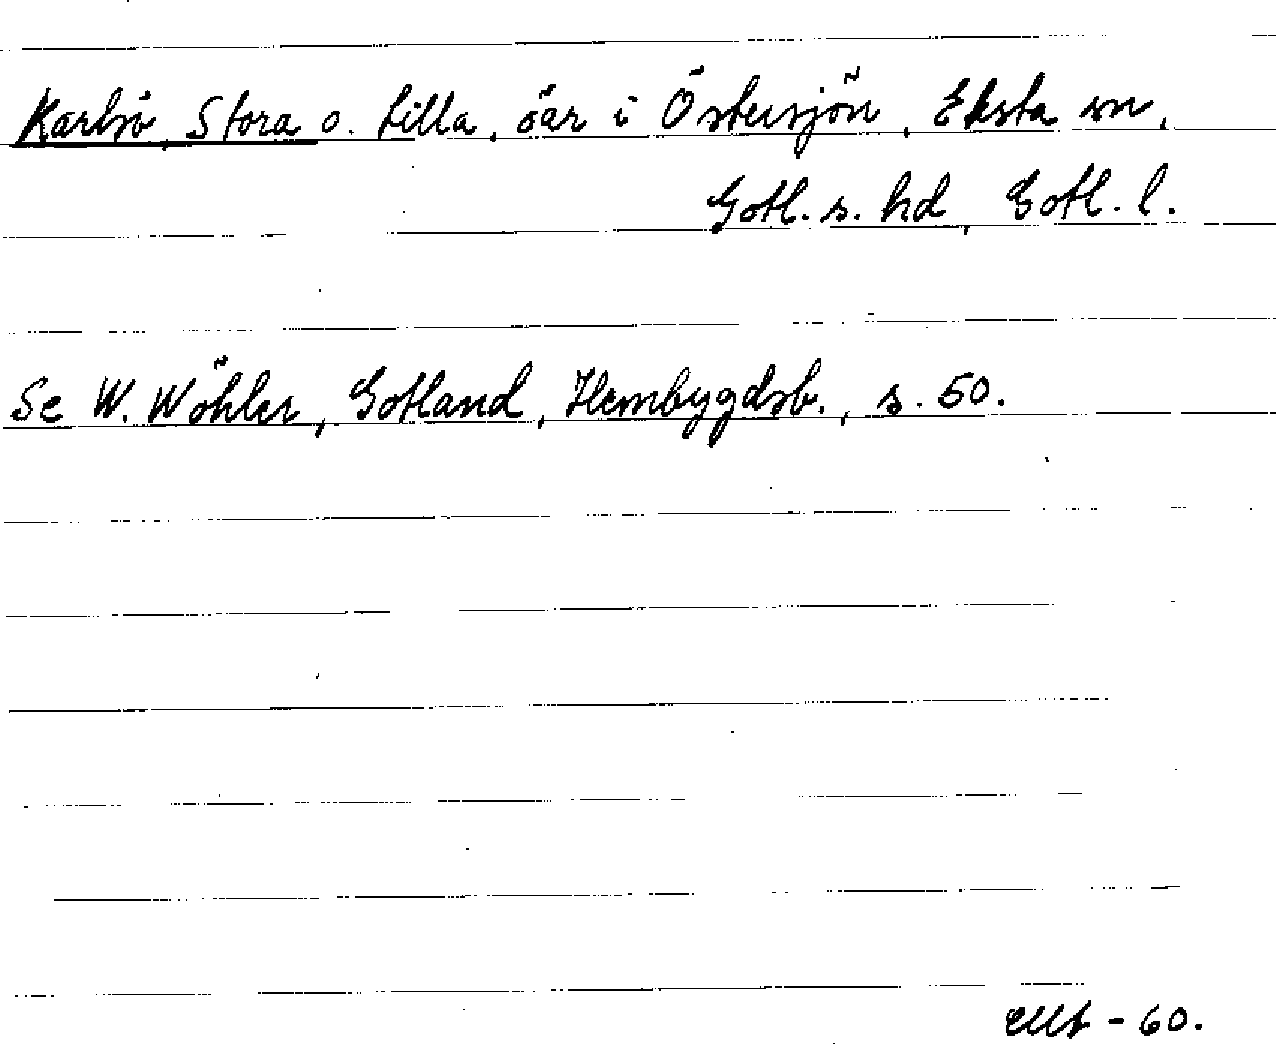 Karlsö, Stora o. Lilla, öar i Östersjön, Eksta sn,
Gotl. s. hd, Gotl. l.
Se W. Wöhler, Gotland, Hembygdsb., s. 50.
- 60.